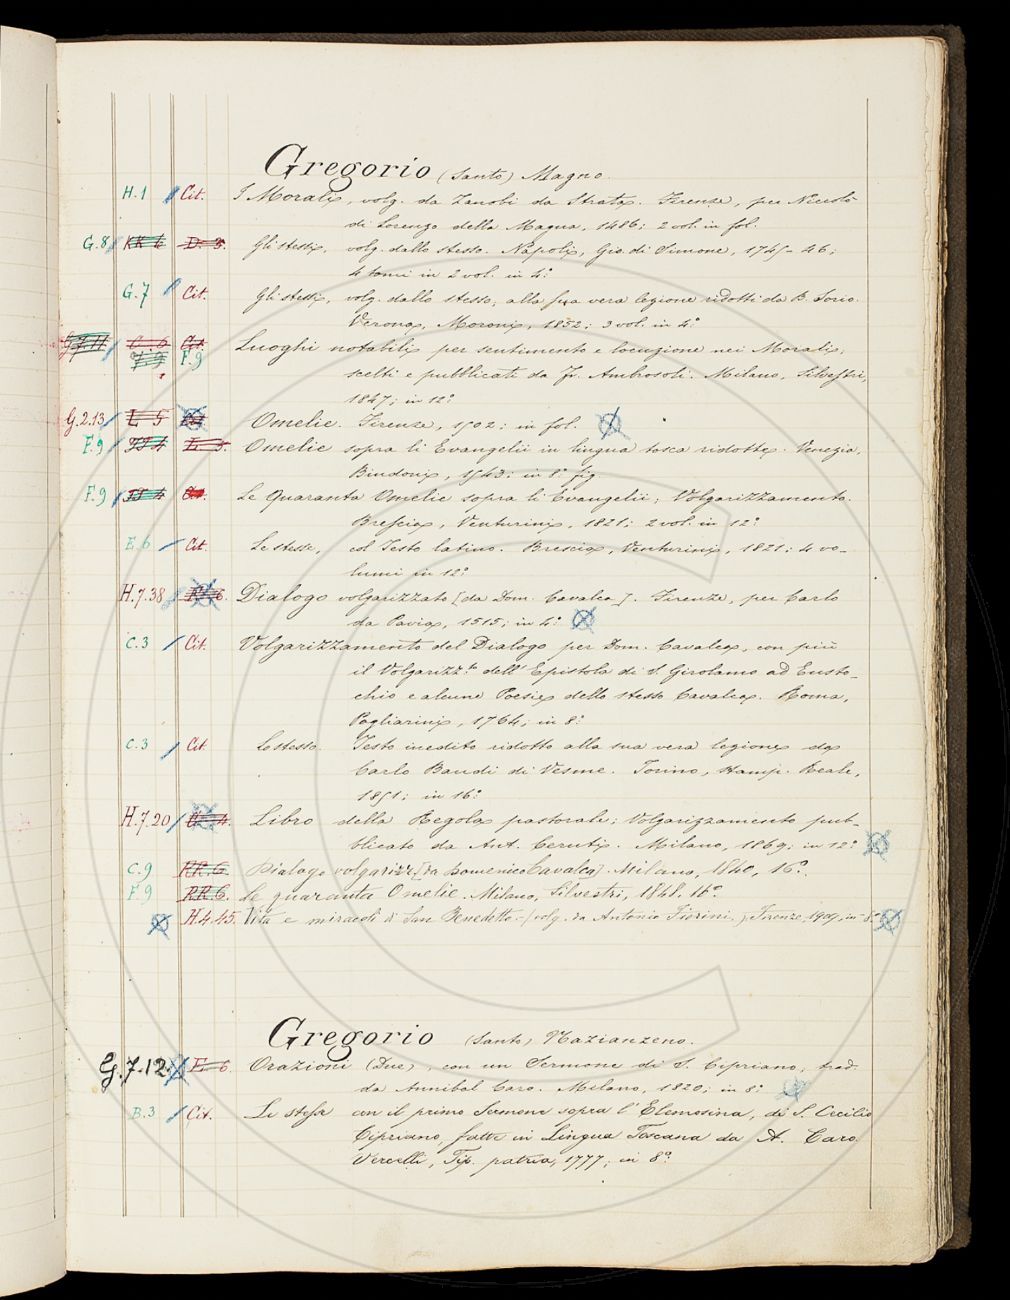 Gregorio (Santo) Magno.
H.1 Cit. I Morali, volg. da Zanobi da Strata. Firenze, per Niccolò
di Lorenzo della Magna, 1486; 2 vol. in fol.
G.8 KK 6 D. 3. Gli stessi, volg. dallo stesso. Napoli, Gio. di Simone, 1745-46;
4 tomi in 2 vol. in 4.º
G.7 Cit. Gli stessi, volg. dallo stesso, alla sua vera lezione ridotti da B. Sorio.
Verona, Moroni, 1852; 3 vol. in 4.º
F.9 Luoghi notabili per sentimento e locuzione nei Morali,
scelti e pubblicati da Fr. Ambrosoli. Milano, Silvestri,
1847; in 12.º
G.2.13 L 5 Omelie. Firenze, 1502; in fol.
F.9 Omelie sopra li Evangelii in lingua tosca ridotte. Venezia,
Bindoni, 1543; in 8.º fig.
F.9 Cit. Le Quaranta Omelie sopra li Evangelii; Volgarizzamento.
Brescia, Venturini, 1821; 2 vol. in 12.º
E.6 Cit. Le stesse, col Testo latino. Brescia, Venturini, 1821; 4 vo-
lumi in 12.º
H.7.38 Dialogo volgarizzato [da Dom. Cavalca]. Firenze, per Carlo
da Pavia, 1515; in 4.º
C.3 Cit. Volgarizzamento del Dialogo per Dom. Cavalca, con più
il Volgarizz.to dell'Epistola di S. Girolamo ad Eusto-
chio e alcune Poesie dello stesso Cavalca. Roma,
Pagliarini, 1764; in 8.º
C.3 Cit. Lo stesso. Testo inedito ridotto alla sua vera lezione da
Carlo Baudi di Vesme. Torino, Stamp. Reale,
1851; in 16.º
H.7.20 Libro della Regola pastorale; Volgarizzamento pub-
blicato da Ant. Ceruti. Milano, 1869; in 12.º
C.9 RR.6. Dialogo volgarizz. [da Domenico Cavalca]. Milano, 1840, 16.º
F.9 RR.6. Le quaranta Omelie. Milano, Silvestri, 1848. 16.º
H.4.45. Vita e miracoli di San Benedetto - (volg. da Antonio Fiorini.) Firenze, 1909, in-8.º
Gregorio (Santo) Nazianzeno.
G.7.12. F. 6 Orazioni (Due), con un Sermone di S. Cipriano, trad.
da Annibal Caro. Milano, 1820; in 8.º
B.3 Cit. Le stesse con il primo Sermone sopra l'Elemosina, di S. Cecilio
Cipriano, fatte in Lingua Toscana da A. Caro.
Vercelli, Tip. patria, 1777; in 8.º